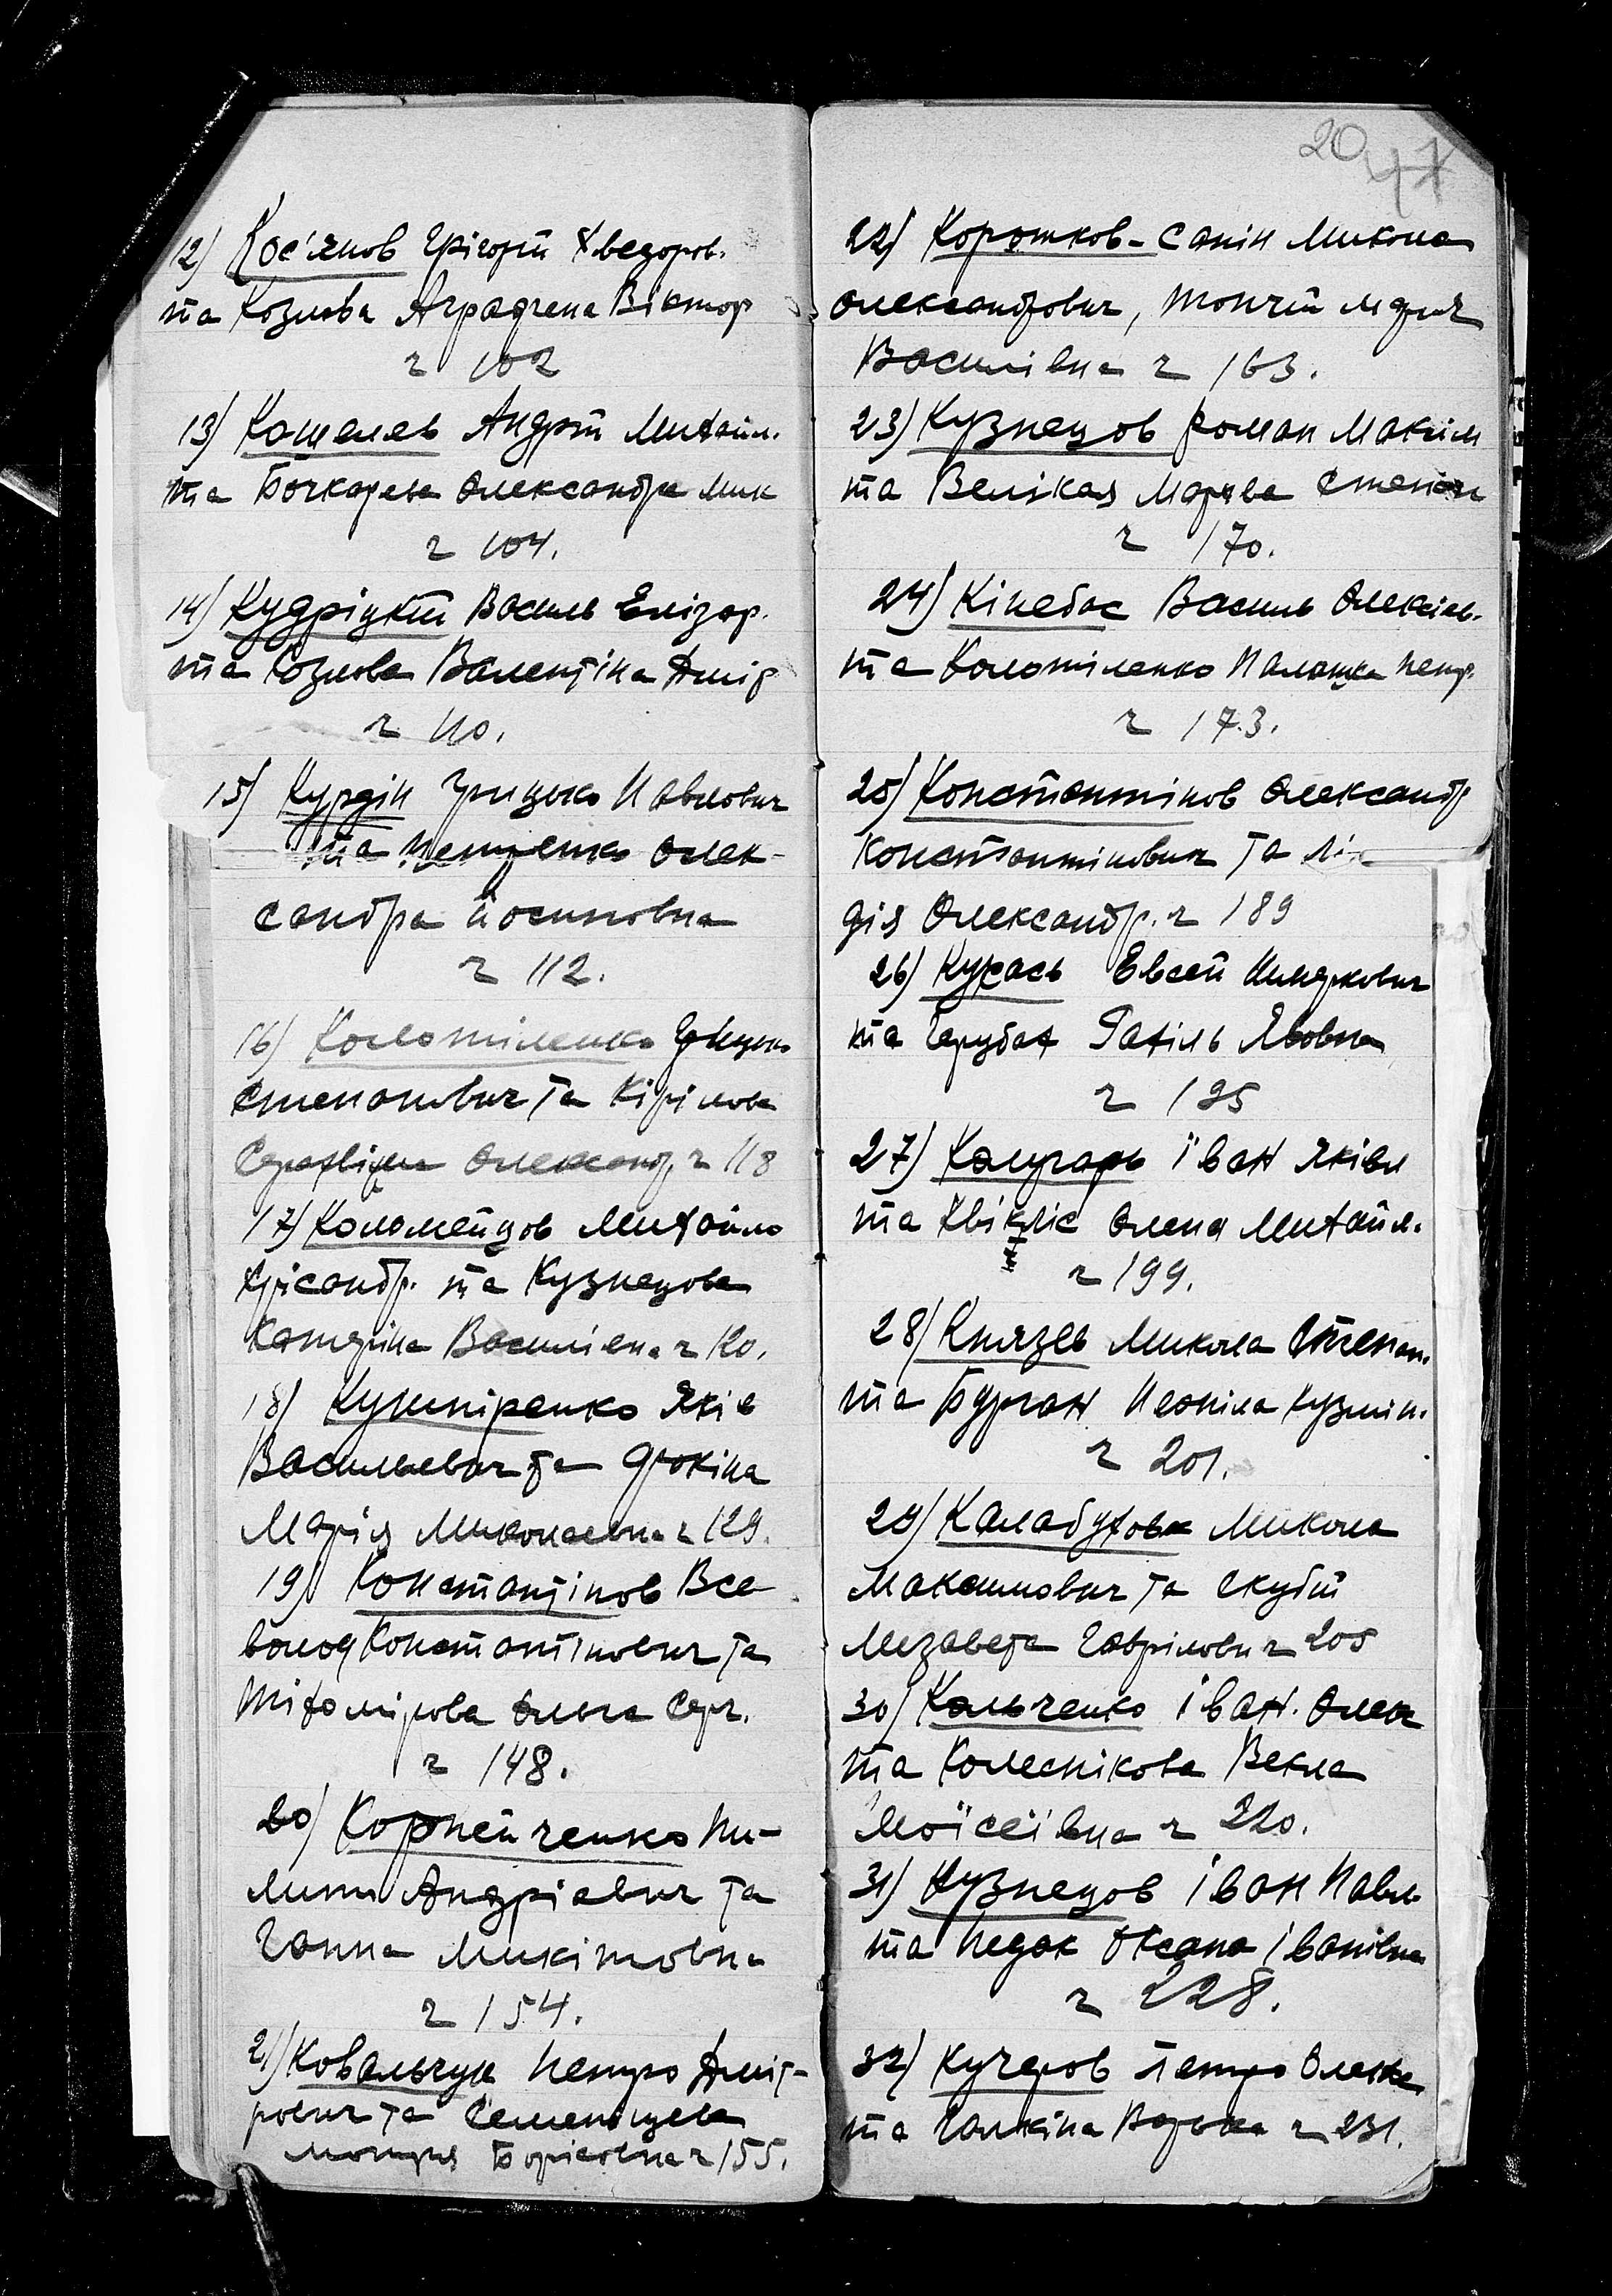 12) Кос'янов Грігорій Хведоров.
та Козлова Аграфена Віктор
г 102
13) Кошелев Андрій Михайл.
та Бочкарева Олександра Мик
г 104.
14) Кудріцкій Василь Елізар.
та Козлова Валентіна Дміт
г 110.
15) Курдін Грицько Павлович
та Петренко Олек-
сандра Йосиповна
г 112.
16) Коломіленко Грицько
Степанович та Кірілова
Олександ. г 118
17) Коломейцов Михайло
Хрісандр. та Кузнецова
Катеріна Василівна г 120.
18) Кушніренко Яків
Васильевич та Фокіна
Марія Миколаевна г 129.
19) Константінов Все
волод Константінович та
Тіхомірова Ольга Серг.
г 148.
20) Корнейченко Пи-
лип Андріевич та
Ганна Микітовна
г 154.
21) Ковальчук Петро Дміт-
рович та Семеніцева
Мотря Борісовна г 155.
20 47
22) Коротков-Санін Микола
Олександрович, Топчій Марія
Василівна г 163.
23) Кузнецов Роман Максім
та Велікая Марфа Степан
г 170.
24) Кінебас Василь Олексієв.
та Коломіленко Палашка Петр.
г 173.
25) Константінов Олександр
Константінович та Лі
дія Олександр. г 189
26) Кукась Евсей
та Рахіль
г 195
27) Калугарь Іван Яківл
та Квікліс Олена Михайл.
г 199.
28) Князев Микола Степан.
та Бурган Неоніла Кузмін.
г 201.
29) Калабухов Микола
Максимович та Скубій
Лизавета Гаврілов г 205
30) Кальченко Іван. Олек
та Колеснікова Векла
Моїсєївна г 220.
31) Кузнецов Іван Павл
та Педак Оксана Іванівна
г 228.
32) Кучеров Петро Олекс
та Галкіна Варька г 231.